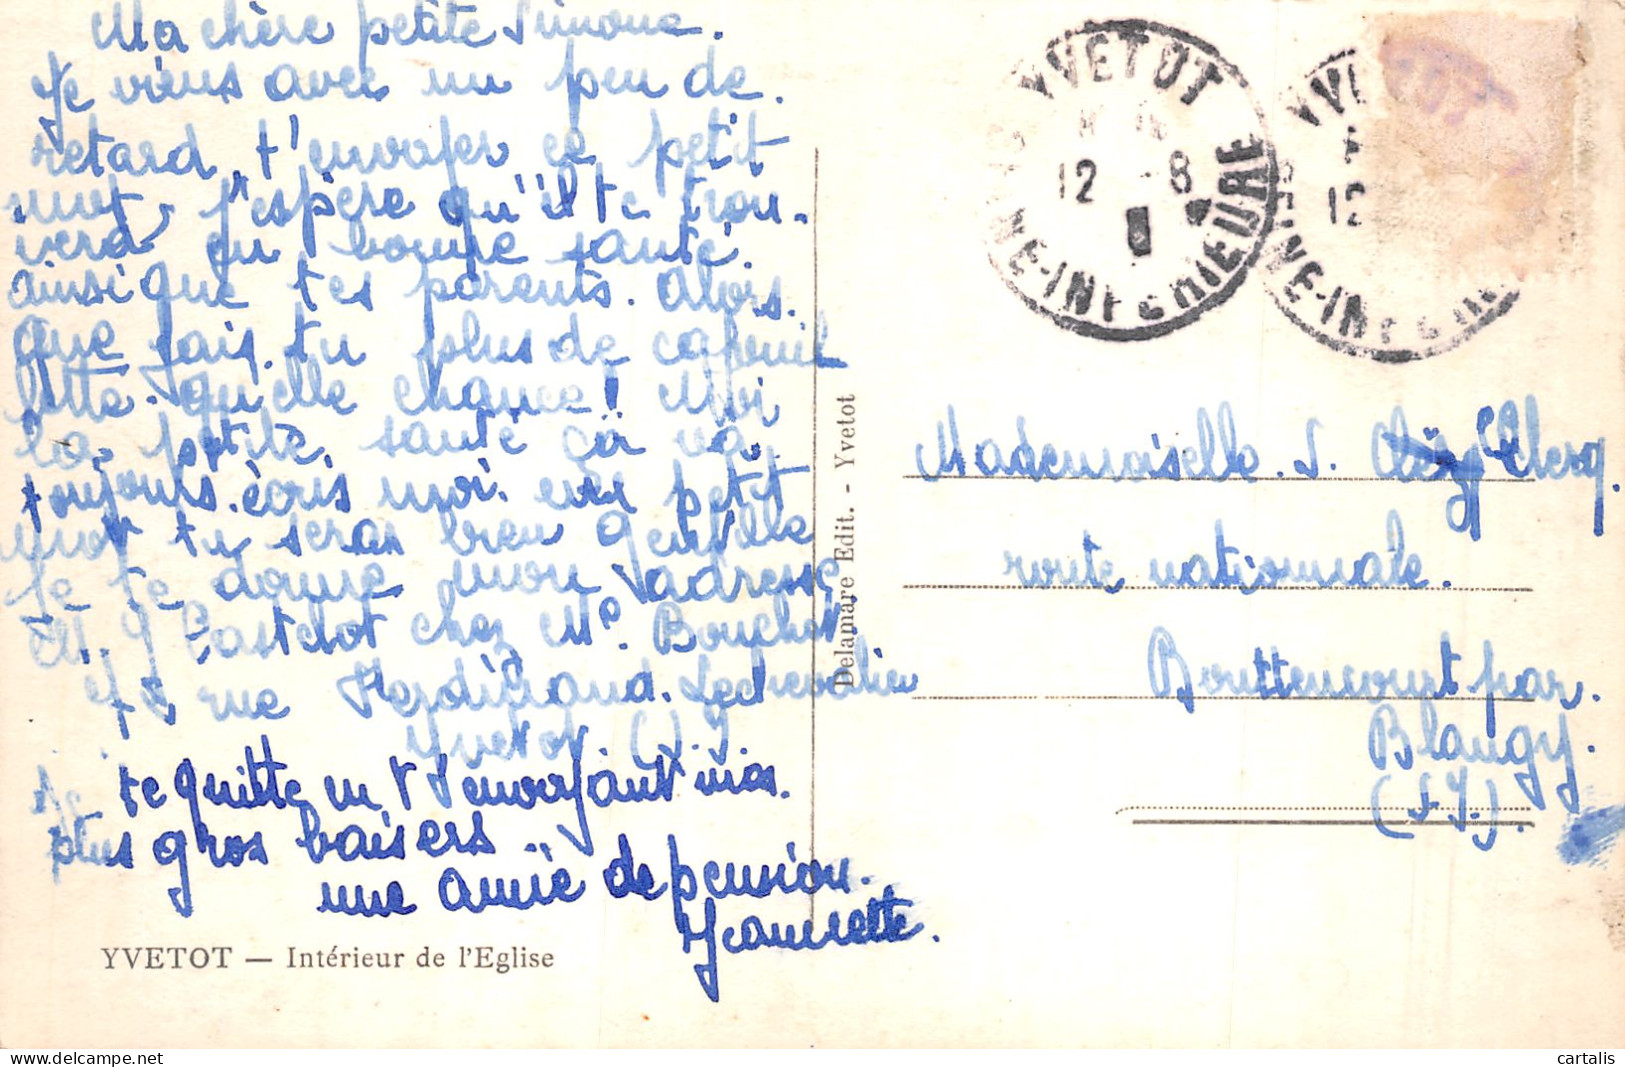 Ma chère petite Simone.
Je viens avec un peu de.
retard, t'envoyer ce petit
mot, j'espère qu'il te trou-
vera en bonne santé
ainsi que tes parents. Alors.
que fais-tu plus de
quelle chance! Moi
la petite santé ça va
toujours. écris moi un petit
mot tu seras bien gentille
Je te donne mon adresse
Castelot chez Me. Bouchet
rue Ferdinand. Lechevalier
Yvetot (S.I)
Je te quitte en t'envoyant mes.
plus gros baisers..
une amie de pension.
Jeannette.
YVETOT — Intérieur de l'Eglise
Delamare Edit. - Yvetot
YVETOT
12 -8
SEINE-INFERIEURE
YVE
12
SEINE-INFERIE
Mademoiselle. S. Leclercq.
route nationale.
Bouttencourt par.
Blangy.
(S.I.).
cartalis
www.delcampe.net